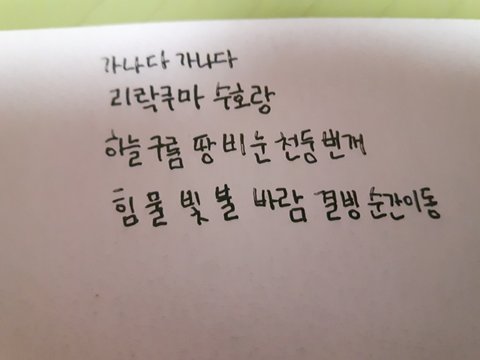 가나다 가나다
리락쿠마 수호랑
하늘 구름 땅 비 눈 천둥 번개
힘 물 빛 불 바람 결빙 순간이동